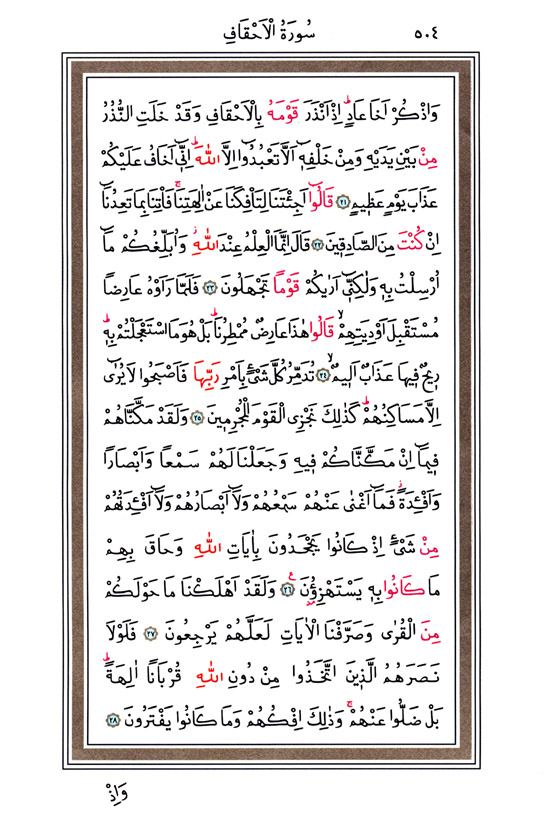 ٥٠٤ سُورَةُ الْاَحْقَافِ
وَاذْكُرْ اَخَا عَادٍۜ اِذْ اَنْذَرَ قَوْمَهُ بِالْاَحْقَافِ وَقَدْ خَلَتِ النُّذُرُ
مِنْ بَيْنِ يَدَيْهِ وَمِنْ خَلْفِهٖٓ اَلَّا تَعْبُدُٓوا اِلَّا اللّٰهَۜ اِنّٖٓي اَخَافُ عَلَيْكُمْ
عَذَابَ يَوْمٍ عَظٖيمٍ ﴿٢١﴾ قَالُٓوا اَجِئْتَنَا لِتَأْفِكَنَا عَنْ اٰلِهَتِنَاۚ فَأْتِنَا بِمَا تَعِدُنَٓا
اِنْ كُنْتَ مِنَ الصَّادِقٖينَ ﴿٢٢﴾ قَالَ اِنَّمَا الْعِلْمُ عِنْدَ اللّٰهِۘ وَاُبَلِّغُكُمْ مَٓا
اُرْسِلْتُ بِهٖ وَلٰكِنّٖٓي اَرٰيكُمْ قَوْمًا تَجْهَلُونَ ﴿٢٣﴾ فَلَمَّا رَاَوْهُ عَارِضًا
مُسْتَقْبِلَ اَوْدِيَتِهِمْۙ قَالُوا هٰذَا عَارِضٌ مُمْطِرُنَاۜ بَلْ هُوَ مَا اسْتَعْجَلْتُمْ بِهٖۜ
رٖيحٌ فٖيهَا عَذَابٌ اَلٖيمٌۙ ﴿٢٤﴾ تُدَمِّرُ كُلَّ شَيْءٍ بِاَمْرِ رَبِّهَا فَاَصْبَحُوا لَا يُرٰٓى
اِلَّا مَسَاكِنُهُمْۜ كَذٰلِكَ نَجْزِي الْقَوْمَ الْمُجْرِمٖينَ ﴿٢٥﴾ وَلَقَدْ مَكَّنَّاهُمْ
فٖيمَٓا اِنْ مَكَّنَّاكُمْ فٖيهِ وَجَعَلْنَا لَهُمْ سَمْعًا وَاَبْصَارًا
وَاَفْـِٔدَةًۘ فَمَٓا اَغْنٰى عَنْهُمْ سَمْعُهُمْ وَلَٓا اَبْصَارُهُمْ وَلَٓا اَفْـِٔدَتُهُمْ
مِنْ شَيْءٍ اِذْ كَانُوا يَجْحَدُونَ بِاٰيَاتِ اللّٰهِ وَحَاقَ بِهِمْ
مَا كَانُوا بِهٖ يَسْتَهْزِؤُ۫نَࣖ ﴿٢٦﴾ وَلَقَدْ اَهْلَكْنَا مَا حَوْلَكُمْ
مِنَ الْقُرٰى وَصَرَّفْنَا الْاٰيَاتِ لَعَلَّهُمْ يَرْجِعُونَ ﴿٢٧﴾ فَلَوْلَا
نَصَرَهُمُ الَّذٖينَ اتَّخَذُوا مِنْ دُونِ اللّٰهِ قُرْبَانًا اٰلِهَةًۜ
بَلْ ضَلُّوا عَنْهُمْۚ وَذٰلِكَ اِفْكُهُمْ وَمَا كَانُوا يَفْتَرُونَ ﴿٢٨﴾
وَاِذْ